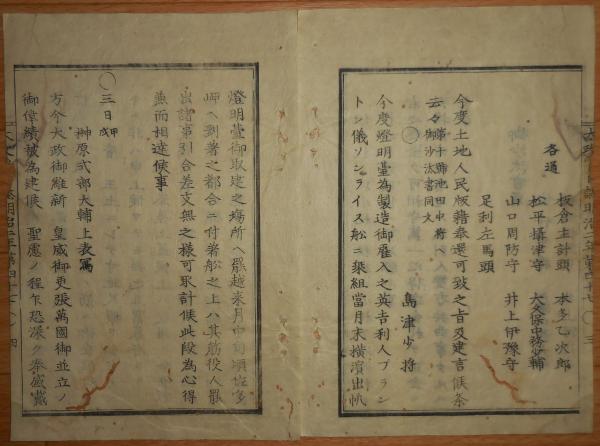 各通
板倉主計頭　本多乙次郎
松平攝津守　大久保中務少輔
山口周防守　井上伊豫守
足利左馬頭
今度土地人民版籍奉還可致之旨及建言候条
云々第十號池田中将ヘ御沙汰書同文
○
島津少将
今度燈明臺為製造御雇入之英吉利人ブラン
トン儀ソンライス舩ニ乗組當月末横濱出帆
燈明臺御取建之場所ヘ罷越来月中旬頃佐多
岬ヘ到著之都合ニ付著舩之上ハ其筋役人罷
出諸事引合差支無之様可取計候此段為心得
兼而相達候事
○三日甲戌
榊原式部大輔上表寫
方今大政御維新　皇威御更張萬國御並立ノ
御偉績被為建候　聖慮ノ程乍恐深ク奉感戴